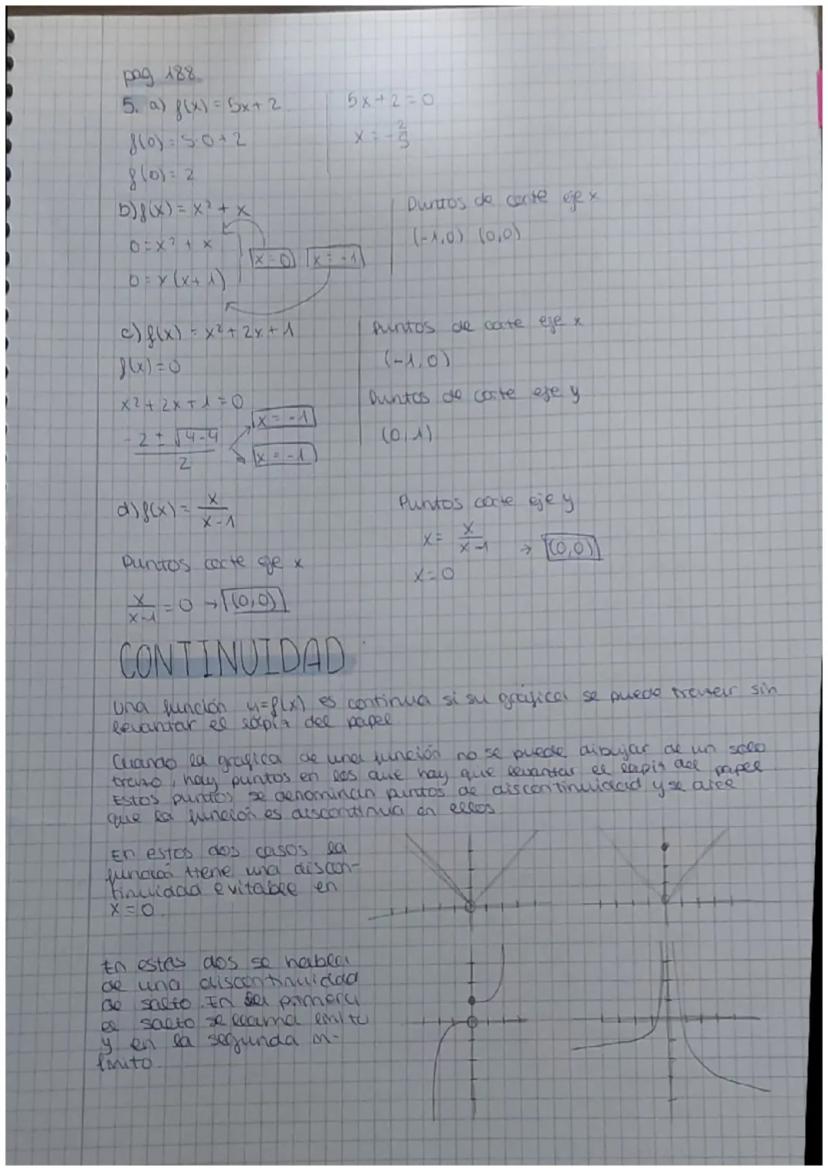 pag 188
5. a) f(x) = 5x + 2
f(0) = 5·0 + 2
f(0) = 2
5x + 2 = 0
x = -2/5
b) f(x) = x² + x
0 = x² + x
0 = x(x+1)
x = 0 x = -1
Puntos de corte eje x
(-1,0) (0,0)
c) f(x) = x² + 2x + 1
f(x) = 0
x² + 2x + 1 = 0
-2 ± √4-4 / 2
x = -1
x = -1
Puntos de corte eje x
(-1,0)
Puntos de corte eje y
(0,1)
d) f(x) = x/x-1
Puntos corte eje x
x/x-1 = 0 → (0,0)
Puntos corte eje y
x = x/x-1 → (0,0)
x = 0
CONTINUIDAD
Una función y=f(x) es continua si su gráfica se puede trazar sin
levantar el lápiz del papel
Cuando la grafica de una función no se puede dibujar de un solo
trazo, hay puntos en los que hay que levantar el lapiz del papel
Estos puntos se denominan puntos de discontinuidad y se dice
que la función es discontinua en ellos
En estos dos casos la
función tiene una discon-
tinuidad evitable en
x = 0.
En estas dos se habla
de una discontinuidad
de salto. En la primera
el salto se llama finito
y en la segunda in-
finito.